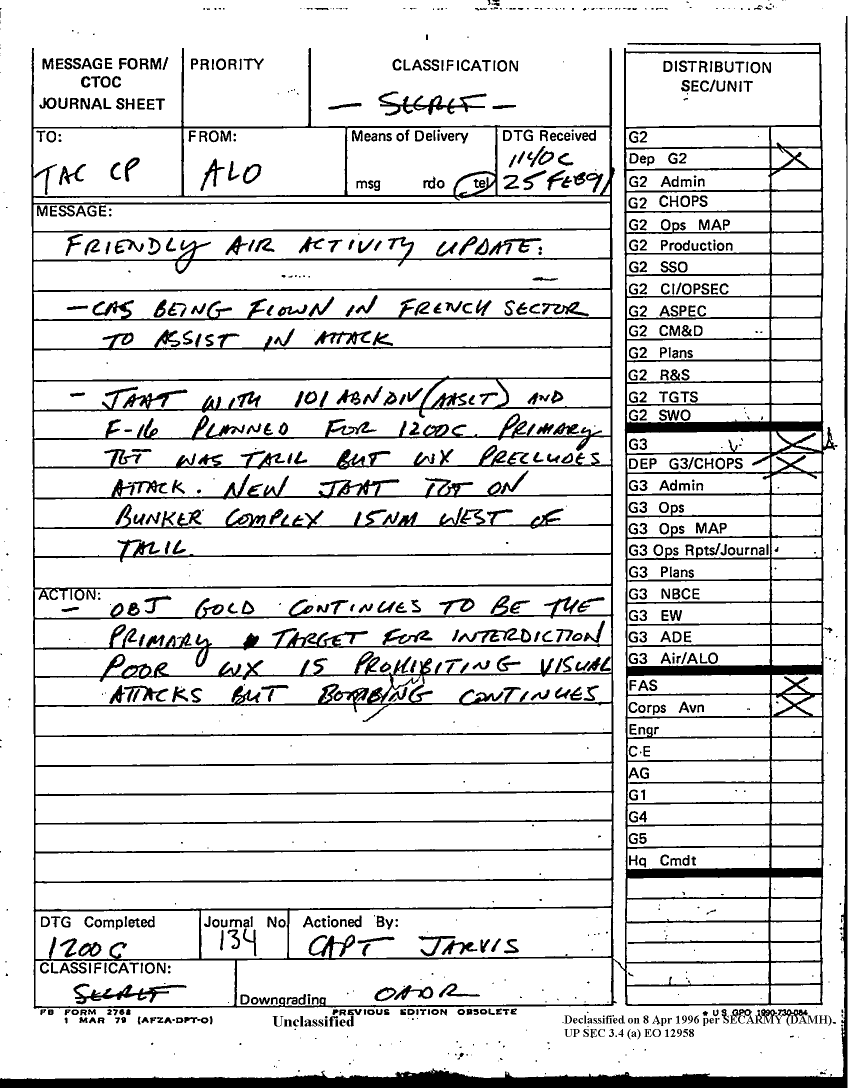 MESSAGE FORM/
CTOC
JOURNAL SHEET
PRIORITY
CLASSIFICATION
— SECRET —
TO:
TAC CP
FROM:
ALO
Means of Delivery
msg rdo tel
DTG Received
1140C
25 FEB 91
MESSAGE:
FRIENDLY AIR ACTIVITY UPDATE:
- CAS BEING FLOWN IN FRENCH SECTOR
TO ASSIST IN ATTACK
- JAAT WITH 101 ABN DIV (AASLT) AND
F-16 PLANNED FOR 1200C. PRIMARY
TGT WAS TALIL BUT WX PRECLUDES
ATTACK. NEW JAAT TGT ON
BUNKER COMPLEX 15NM WEST OF
TALIL.
ACTION:
- OBJ GOLD CONTINUES TO BE THE
PRIMARY TARGET FOR INTERDICTION
POOR WX IS PROHIBITING VISUAL
ATTACKS BUT BOMBING CONTINUES.
DTG Completed
1200C
Journal No
134
Actioned By:
CAPT JARVIS
CLASSIFICATION:
SECRET
Downgrading OADR
FB FORM 2768
1 MAR 79 (AFZA-DPT-O)
PREVIOUS EDITION OBSOLETE
Unclassified
* U S GPO 1990-730-084
Declassified on 8 Apr 1996 per SECARMY (DAMH).
UP SEC 3.4 (a) EO 12958
DISTRIBUTION
SEC/UNIT
G2
Dep G2 X
G2 Admin
G2 CHOPS
G2 Ops MAP
G2 Production
G2 SSO
G2 CI/OPSEC
G2 ASPEC
G2 CM&D
G2 Plans
G2 R&S
G2 TGTS
G2 SWO
G3 X
DEP G3/CHOPS X
G3 Admin
G3 Ops
G3 Ops MAP
G3 Ops Rpts/Journal
G3 Plans
G3 NBCE
G3 EW
G3 ADE
G3 Air/ALO
FAS X
Corps Avn X
Engr
C-E
AG
G1
G4
G5
Hq Cmdt